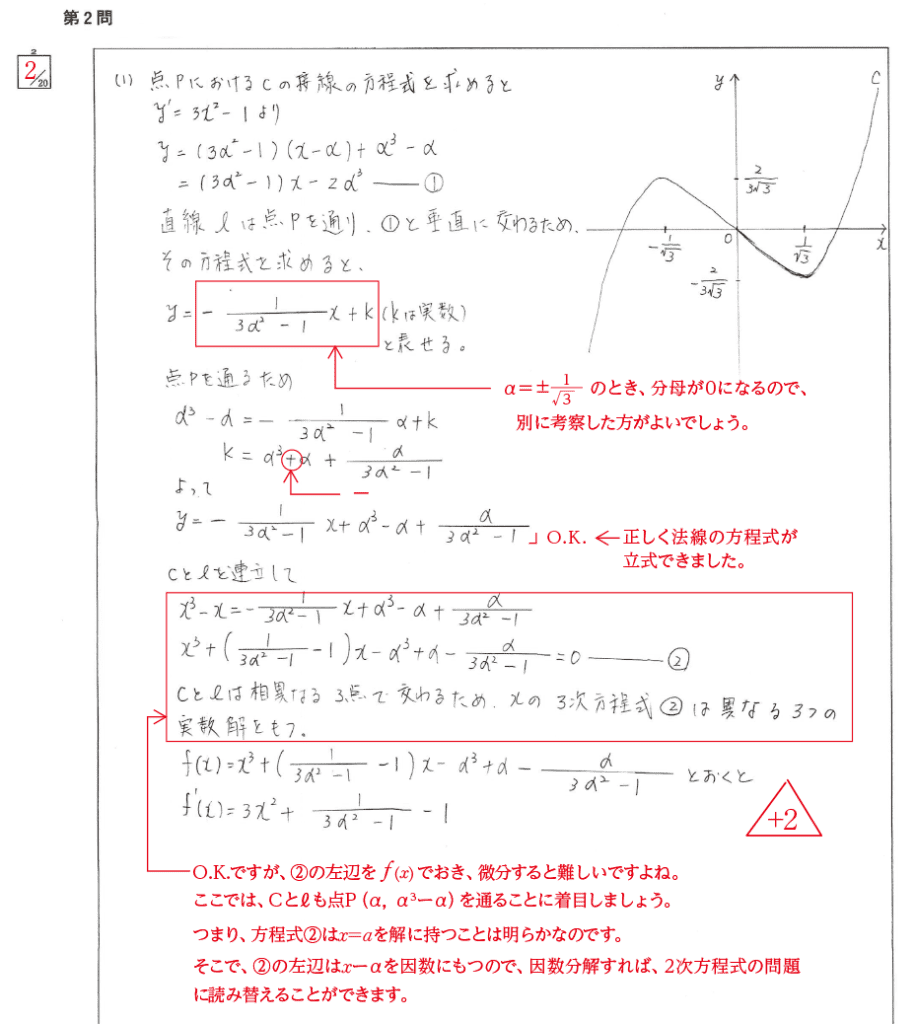 第2問
2
2/20
(1) 点Pにおける C の接線の方程式を求めると
y' = 3x² - 1 より
y = (3α² - 1)(x - α) + α³ - α
= (3α² - 1)x - 2α³ —— ①
直線 l は点Pを通り、①と垂直に交わるため、
その方程式を求めると、
y = - 1/(3α² - 1) x + k (kは実数)
と表せる。
y
C
2/(3√3)
-1/√3
0
1/√3
x
-2/(3√3)
α=±1/√3 のとき、分母が0になるので、
別に考察した方がよいでしょう。
点Pを通るため
α³ - α = - 1/(3α² - 1) α + k
k = α³ + α + α/(3α² - 1)
－
よって
y = - 1/(3α² - 1) x + α³ - α + α/(3α² - 1) 」O.K. ← 正しく法線の方程式が
立式できました。
Cとlを連立して
x³ - x = - 1/(3α² - 1) x + α³ - α + α/(3α² - 1)
x³ + (1/(3α² - 1) - 1)x - α³ + α - α/(3α² - 1) = 0 —— ②
Cとlは相異なる3点で交わるため、xの3次方程式②は異なる3つの
実数解をもつ。
f(x) = x³ + (1/(3α² - 1) - 1)x - α³ + α - α/(3α² - 1) とおくと
f'(x) = 3x² + 1/(3α² - 1) - 1
+2
O.K.ですが、②の左辺を f(x) でおき、微分すると難しいですよね。
ここでは、Cとℓも点P (α, α³ー α) を通ることに着目しましょう。
つまり、方程式②はx=aを解に持つことは明らかなのです。
そこで、②の左辺はxーαを因数にもつので、因数分解すれば、2次方程式の問題
に読み替えることができます。